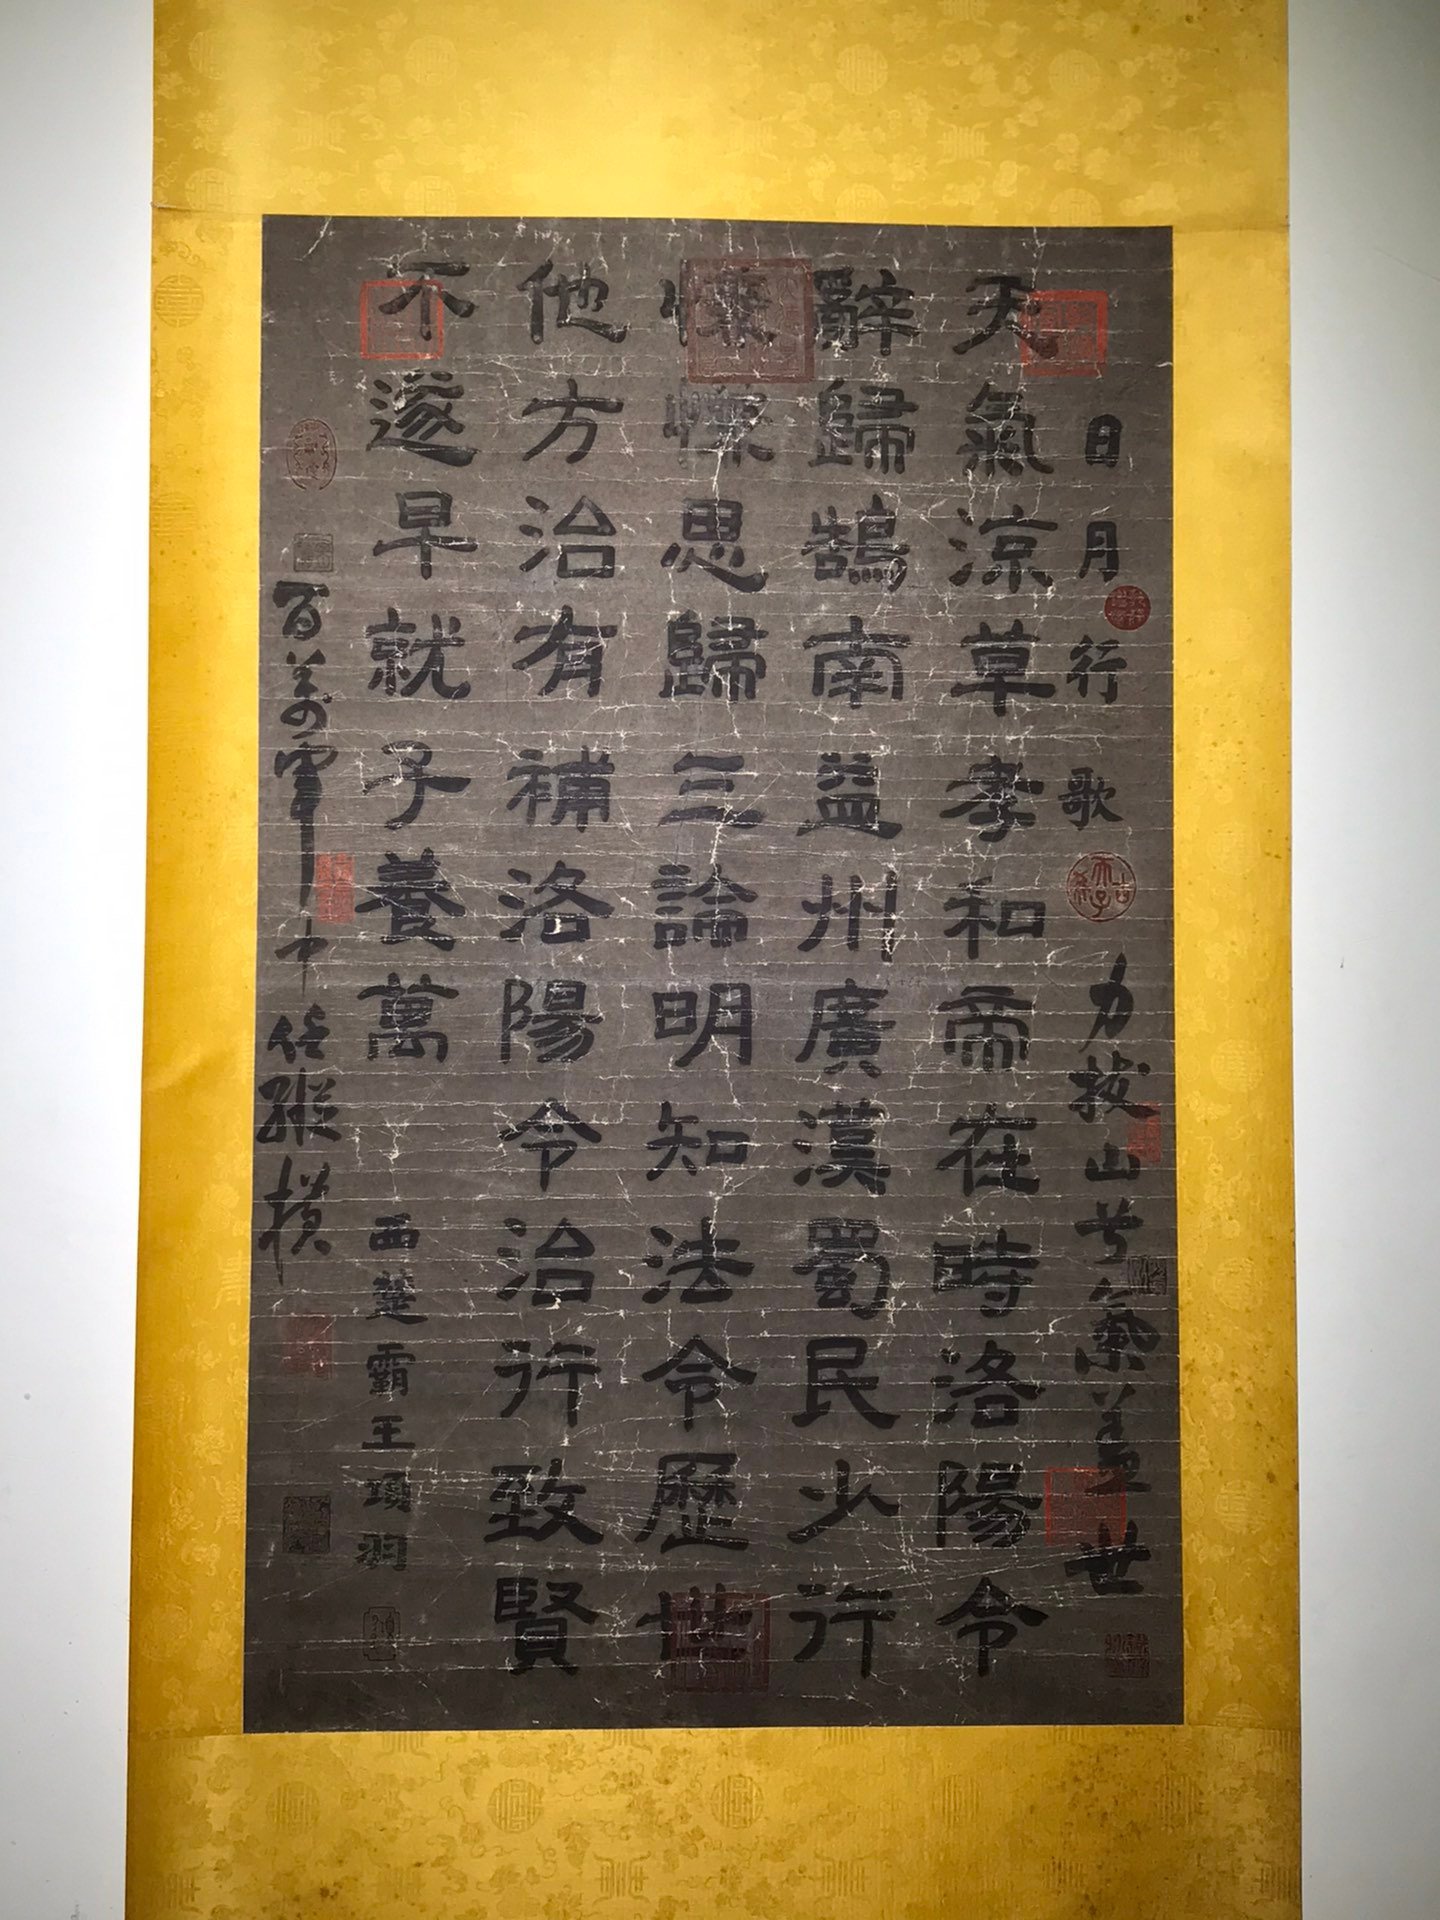 日月行歌
力拔山兮氣蓋世
天氣涼草孝和帝在時洛陽令
辭歸鵠南益州廣漢蜀民少行
懷思歸三論明知法令歷世
他方治有補洛陽令治行致賢
不遂早就子養萬
西楚霸王項羽
百萬軍中任縱橫